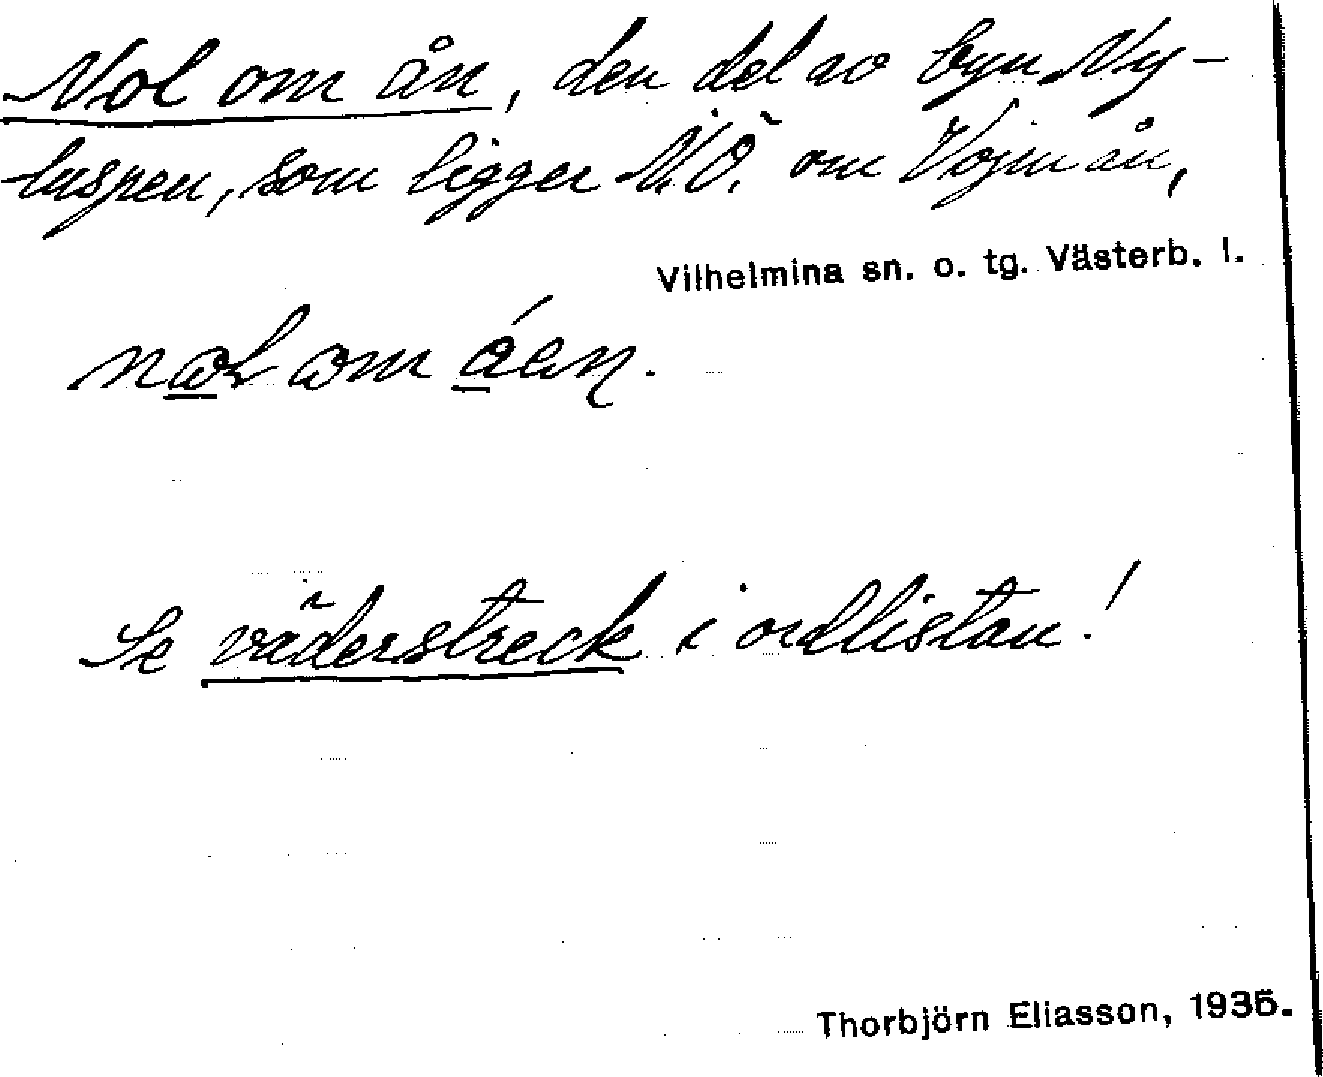 Nol om ån, den del av byn Ny-
luspen, som ligger N.Ö. om Vojmån,
Vilhelmina sn. o. tg. Västerb. l.
Se väderstreck i ordlistan!
Thorbjörn Eliasson, 1935.